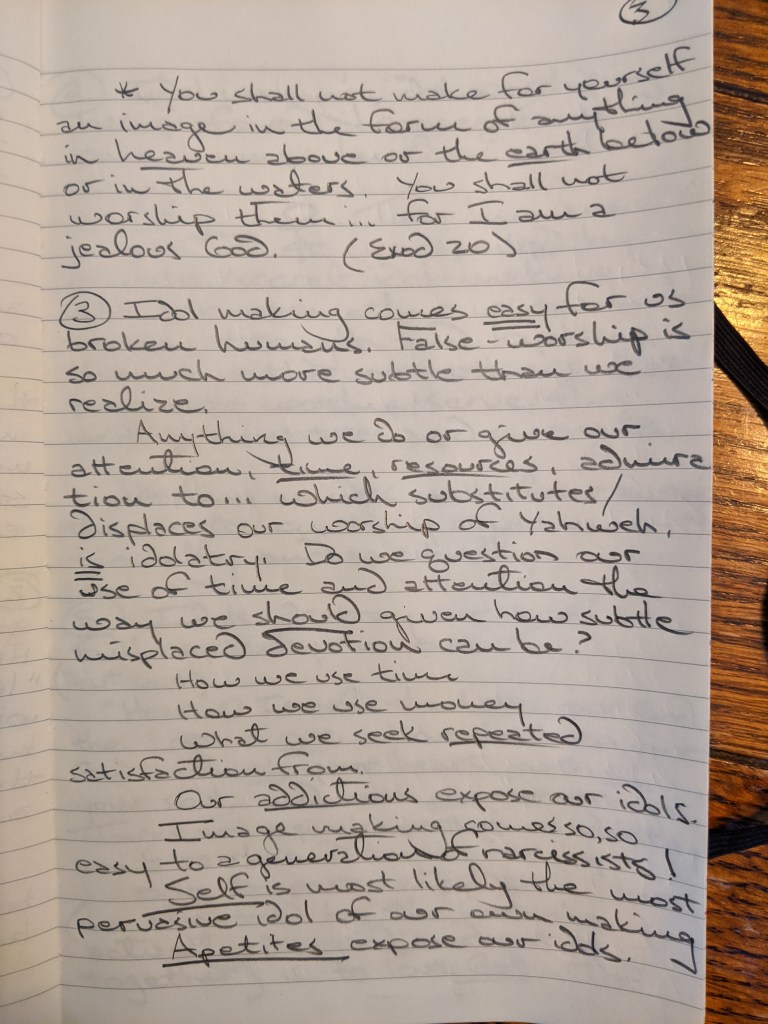 3
* You shall not make for yourself
an image in the form of anything
in heaven above or the earth below
or in the waters. You shall not
worship them... for I am a
jealous God. (Exod 20)
3 Idol making comes easy for us
broken humans. False-worship is
so much more subtle than we
realize.
Anything we do or give our
attention, time, resources, admira
tion to... which substitutes/
displaces our worship of Yahweh,
is idolatry. Do we question our
use of time and attention the
way we should given how subtle
misplaced devotion can be?
How we use time
How we use money
What we seek repeated
satisfaction from.
Our addictions expose our idols.
Image making comes so, so
easy to a generation of narcissists!
Self is most likely the most
pervasive idol of our own making
Apetites expose our idols.